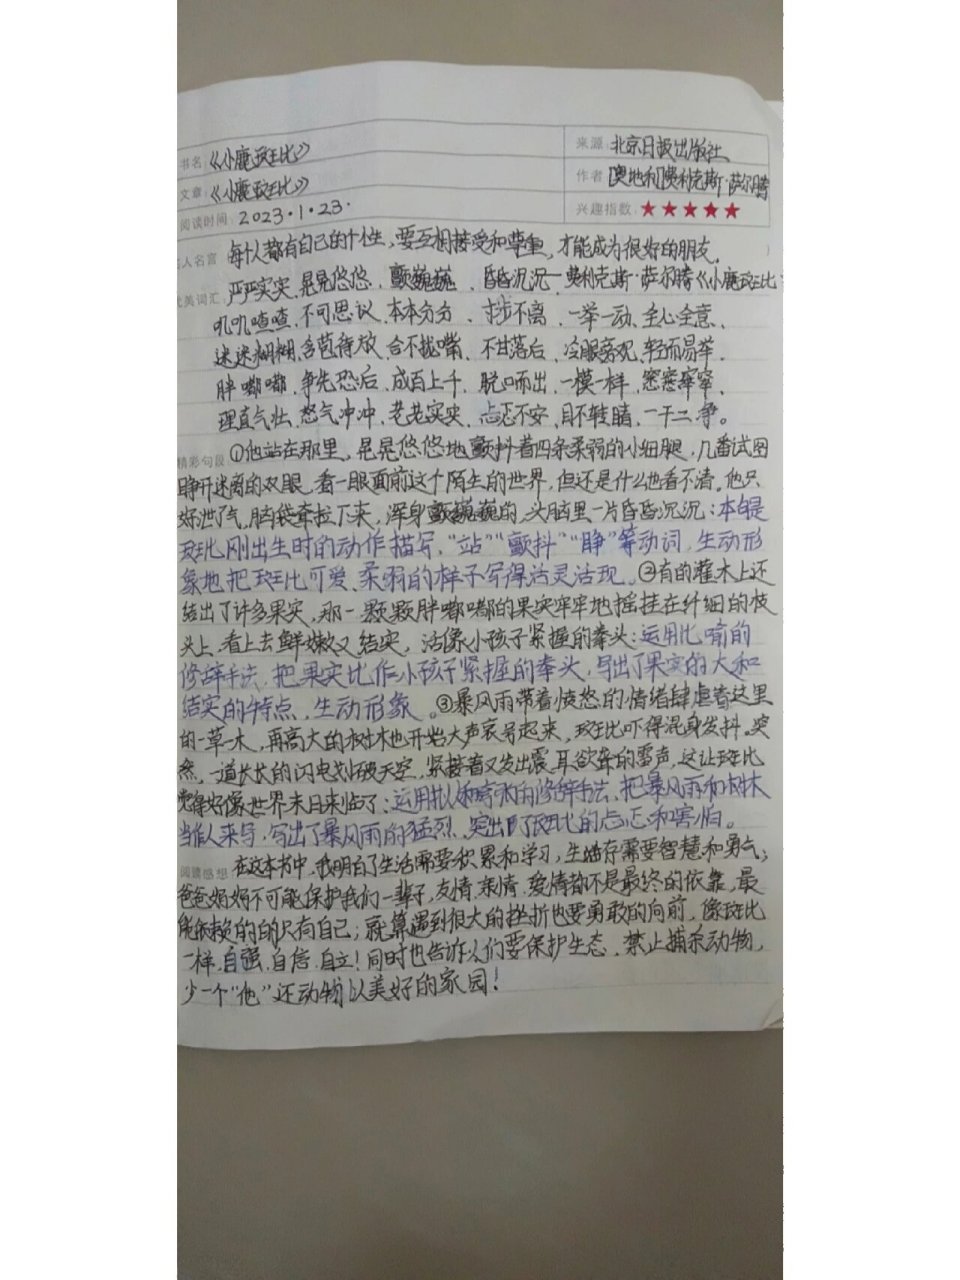 书名:《小鹿斑比》
来源:北京日报出版社
文章:《小鹿斑比》
作者[奥地利]费利克斯·萨尔腾
阅读时间:2023·1·23·
兴趣指数:★★★★★
名人名言 每个人都有自己的个性,要互相接受和尊重,才能成为很好的朋友。
优美词汇 严严实实、晃晃悠悠、颤巍巍、昏昏沉沉—费利克斯·萨尔腾《小鹿斑比》
叽叽喳喳、不可思议、本本分分、寸步不离、一举一动、全心全意、
迷迷糊糊、含苞待放、合不拢嘴、不甘落后、冷眼旁观、轻而易举、
胖嘟嘟、争先恐后、成百上千、脱口而出、一模一样、窸窸窣窣、
理直气壮、怒气冲冲、老老实实、忐忑不安、目不转睛、一干二净。
精彩句段 ①他站在那里,晃晃悠悠地颤抖着四条柔弱的小细腿,几番试图
睁开迷离的双眼,看一眼面前这个陌生的世界,但还是什么也看不清。他只
好泄了气,脑袋耷拉下来,浑身颤巍巍的,头脑里一片昏昏沉沉:本句是
斑比刚出生时的动作描写,"站""颤抖""睁"等动词,生动形
象地把斑比可爱、柔弱的样子写得活灵活现。②有的灌木上还
结出了许多果实,那一颗颗胖嘟嘟的果实牢牢地摇挂在纤细的枝
头上,看上去鲜嫩又结实,活像小孩子紧握的拳头:运用比喻的
修辞手法,把果实比作小孩子紧握的拳头,写出了果实的大和
结实的特点,生动形象。③暴风雨带着愤怒的情绪肆虐着这里
的一草一木,再高大的树木也开始大声哀号起来,斑比吓得混身发抖。突
然,一道长长的闪电划破天空,紧接着又发出震耳欲聋的雷声,这让斑比
觉得好像世界末日来临了:运用拟人和夸张的修辞手法,把暴风雨和树木
当作人来写,写出了暴风雨的猛烈,突出了斑比的忐忑和害怕。
阅读感想 在这本书中,我明白了生活需要积累和学习,生存需要智慧和勇气;
爸爸妈妈不可能保护我们一辈子,友情、亲情、爱情都不是最终的依靠,最
能依赖的的只有自己;就算遇到很大的挫折也要勇敢的向前,像斑比
一样,自强、自信、自立!同时也告诉人们要保护生态,禁止捕杀动物,
少一个"他"还动物以美好的家园!